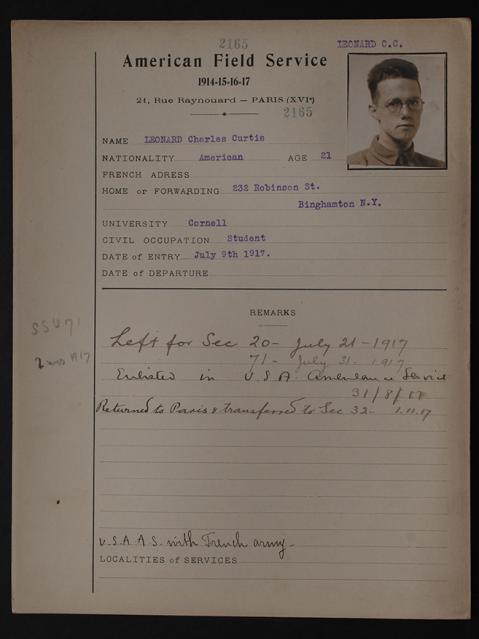 2165
LEONARD C.C.
American Field Service
1914-15-16-17
21, Rue Raynouard — PARIS (XVIe)
2165
NAME LEONARD Charles Curtis
NATIONALITY American AGE 21
FRENCH ADRESS
HOME or FORWARDING 232 Robinson St.
Binghamton N.Y.
UNIVERSITY Cornell
CIVIL OCCUPATION Student
DATE of ENTRY July 9th 1917.
DATE of DEPARTURE
REMARKS
SSU 71
Left for Sec 20- July 21-1917
71- July 31-1917
Enlisted in U.S.A. Ambulance Service
31/8/17
Returned to Paris & transferred to Sec 32- 1.11.17
U.S.A.A.S. with French army-
LOCALITIES of SERVICES